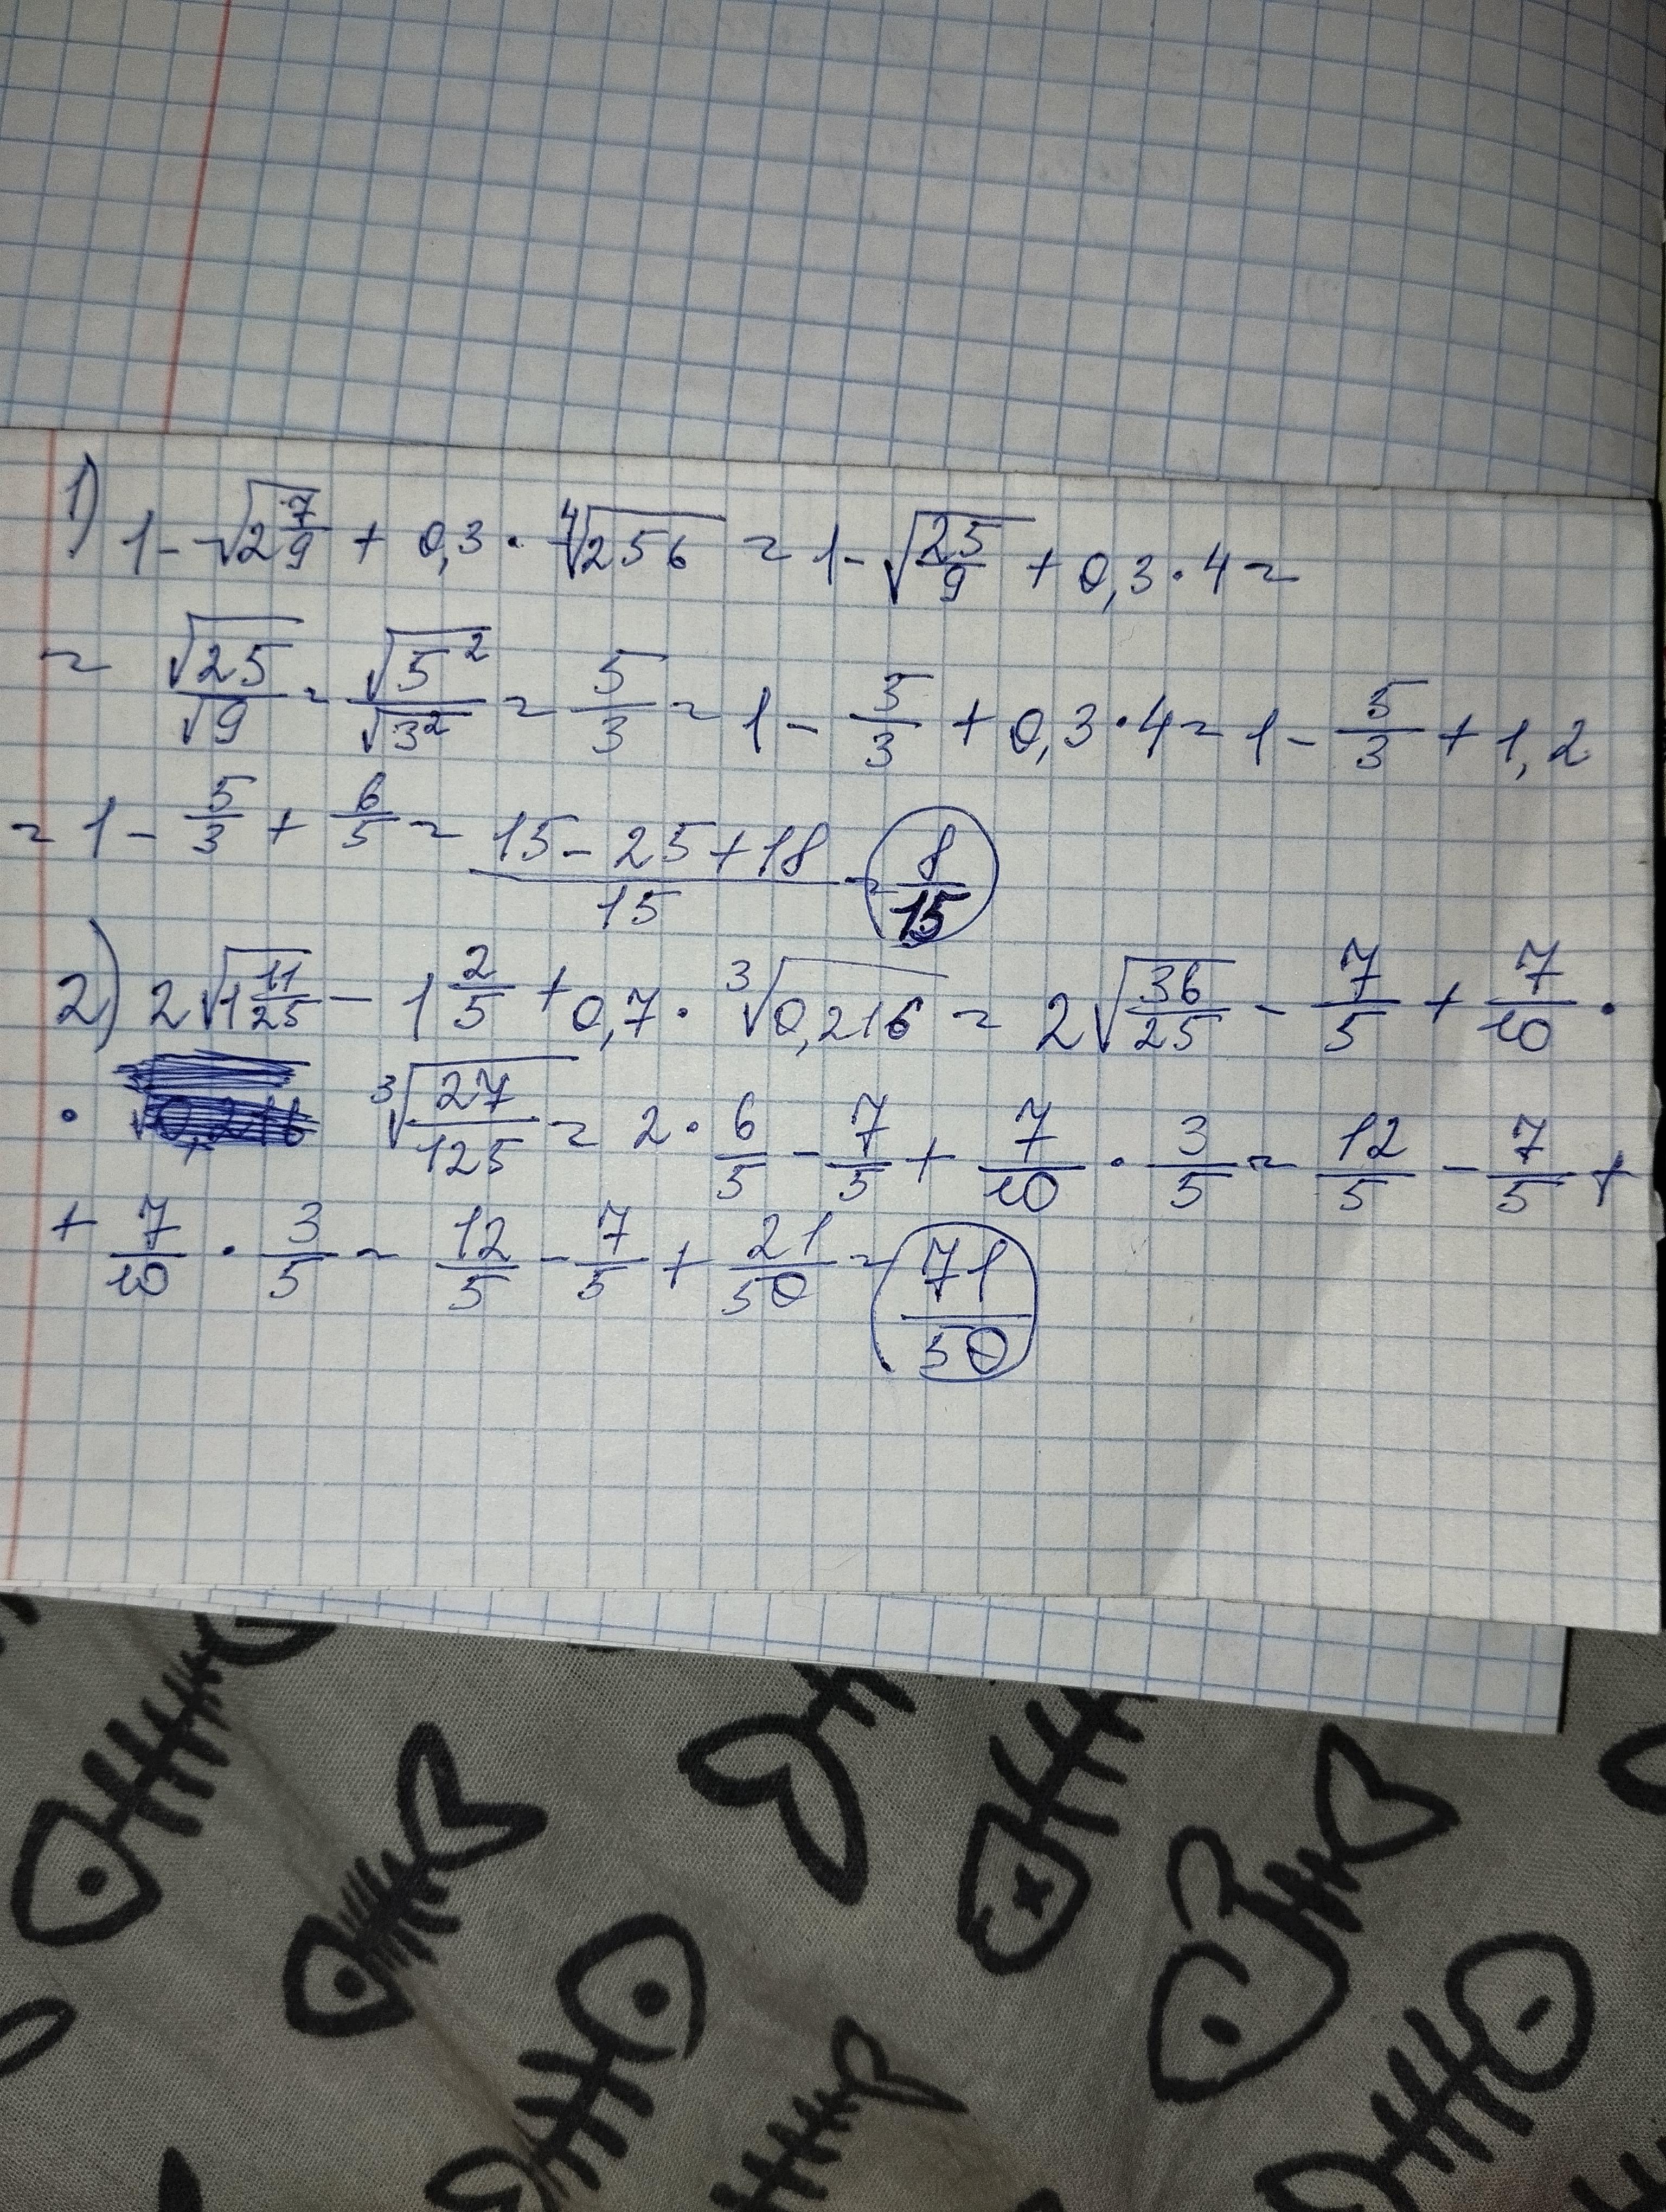 1) 1 - √(2 7/9) + 0,3 · ⁴√256 = 1 - √(25/9) + 0,3 · 4 =
= √25/√9 = √5²/√3² = 5/3 = 1 - 5/3 + 0,3 · 4 = 1 - 5/3 + 1,2
= 1 - 5/3 + 6/5 = (15 - 25 + 18)/15 = 8/15
2) 2√(1 11/25) - 1 2/5 + 0,7 · ³√0,216 = 2√(36/25) - 7/5 + 7/10 ·
· ³√(27/125) = 2 · 6/5 - 7/5 + 7/10 · 3/5 = 12/5 - 7/5 +
+ 7/10 · 3/5 = 12/5 - 7/5 + 21/50 = 71/50